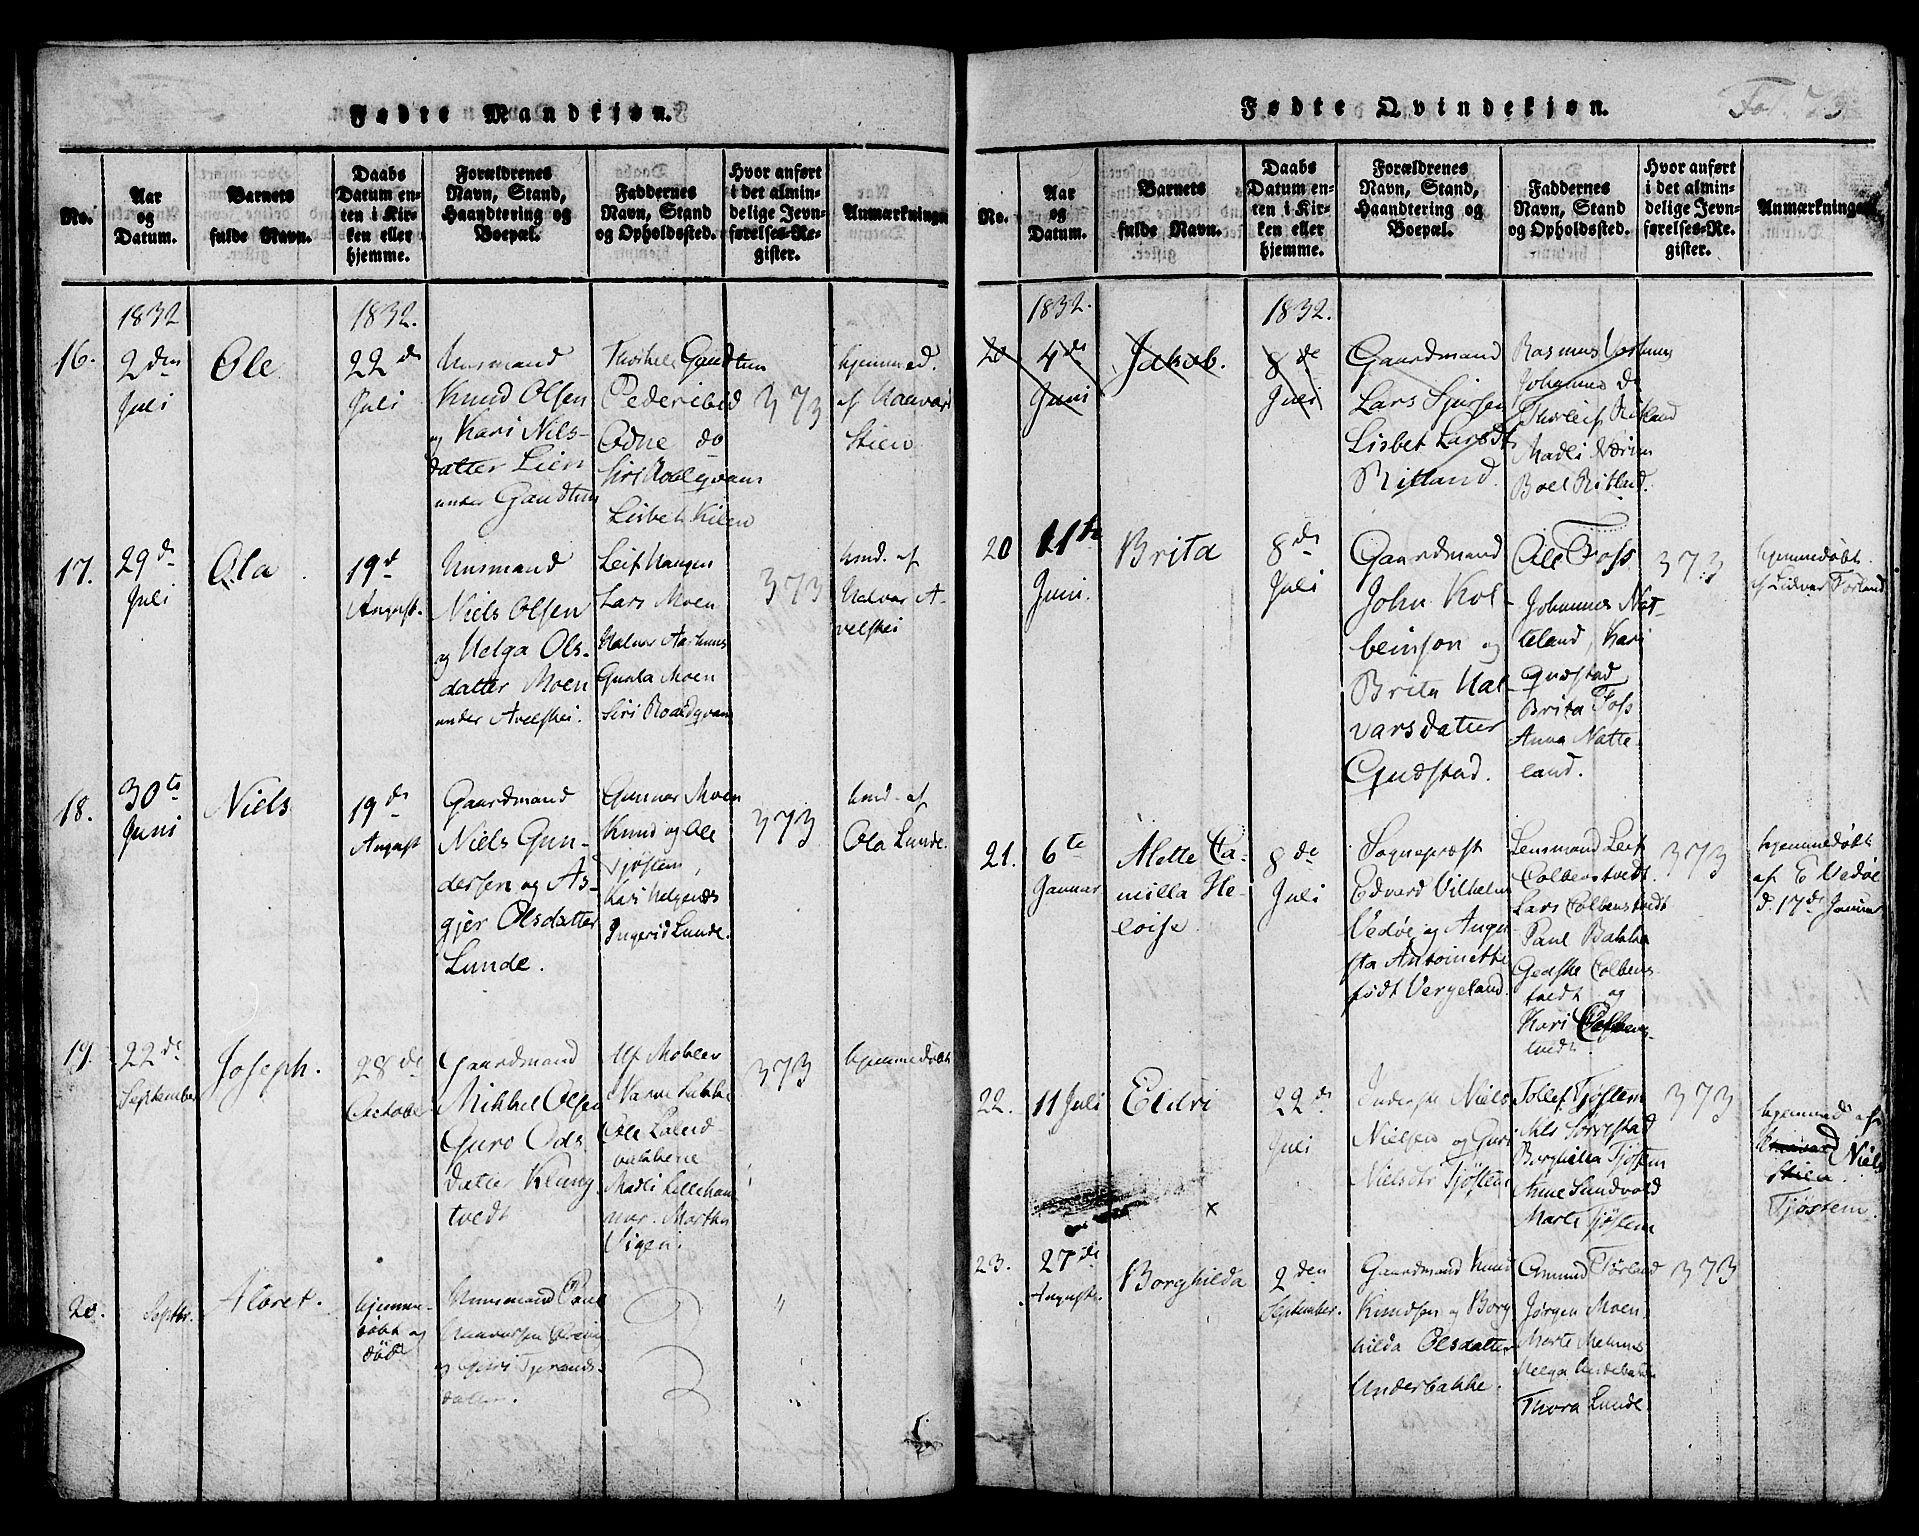 Fødte Mandkjøn.
No.
Aar
og
Datum.
Barnets
fulde Navn.
Daabs
Datum en-
ten i Kir-
ken eller
hjemme.
Forældrenes
Navn, Stand,
Haandtering og
Boepæl.
Faddernes
Navn, Stand
og Opholdssted.
Hvor anført
i det almin-
delige Jevn-
førelses-Re-
gister.
Anmærkninger
1832
1832.
16.
2den
Juli
Ole
22de
Juli
Huusmand
Knud Olsen
og Kari Nils-
datter Lien
under
Lisbet Kilen
373
hjemmed.
af
17.
29de
Juli
Ola
19d
August.
Huusmand
Niels Olsen
og Helga Ols-
datter Moen
under Avelshei.
Leif Haugen
Lars Moen
Halvor Aarhuus
Gunla Moen
Siri
373
hmd. af
Halvor A-
velshei
18.
30te
Juni
Niels
19de
August
Gaardmand
Niels Gun-
dersen og As-
gjer Olsdatter
Lunde.
Gunnar Moen
Knud og Ole
Tjøstem,
Kari
Ingerid Lunde.
373
hmd. af
Ola Lunde.
19.
22de
September
Joseph.
28de
October
Gaardmand
Mikkel Olsen
Guro Ods
datter Klung
tvedt
Ole Laland
bakkene
Madli Lilleham
mer. Martha
Vigen.
373
hjemmedøbt
20.
Septbr.
hjemme-
døbt og
død
Huusmand
og Guri
"
"
Fødte Qvindekjøn.
Fol. 73
No.
Aar
og
Datum.
Barnets
fulde Navn.
Daabs
Datum en-
ten i Kir-
ken eller
hjemme.
Forældrenes
Navn, Stand,
Haandtering og
Boepæl.
Faddernes
Navn, Stand
og Opholdssted.
Hvor anført
i det almin-
delige Jevn-
førelses-Re-
gister.
Anmærkninger
1832.
1832.
20
4de
Juni
Jakob.
8de
Juli
Gaardmand
Lars Sjursen
Lisbet Larsdt
Ritland.
Rasmus
Johannes do
Thorleif Ritland
Madli
Boel Ritland.
20
11te
Juni.
Brita
8de
Juli
Gaardmand
John Kol-
beinson og
Brita Hal-
varsdatter
Gudstad.
Ole Foss
Johannes Nat-
teland, Kari
Gudstad
Brita Foss
Anna Natte-
land.
373
hjemmedøbt
af Lidvar Førland
21.
6te
Januar
Alette Ca-
milla He-
loise.
8de
Juli
Sognepræst
Edvard Vilhelm
Vedøe og Augu
sta Antoinette
født Vergeland.
Lensmand Leif
Colbenstvedt.
Lars Colbenstvedt
Paul Bakka
Gedske Colbens-
tvedt og
Kari Colbens-
tvedt.
373
hjemmedøbt
af E Vedøe
d. 17de Januar
22.
11 Juli
Eldri
22de
Juli
Inderste Niels
Nielsen og Guri
Nielsdtr Tjøstem
Tollef Tjøstem
Nils Sorvestad
Borghilla Tjøstem
Anne Sundvold
Marte Tjøstem
373
hjemmed af
Niels
Tjøstem.
x
23.
27de
Auguste.
Borghilda
2den
September.
Gaardmand Knud
Knudsen og Borg
hilda Olsdatter
Underbakke.
Amund Førland
Jørgen Moen
Marte
Helga Underbakke
Thora Lunde
373